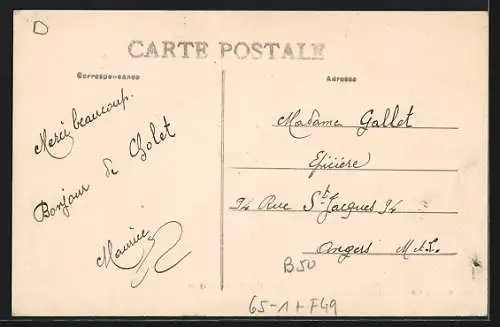 D
CARTE POSTALE
Correspondance
Adresse
Merci beaucoup.
Bonjour de Cholet
Maurice
Madame Gallet
Epicière
94 Rue St Jacques 94
Angers M.&L.
B50
65-1+F49